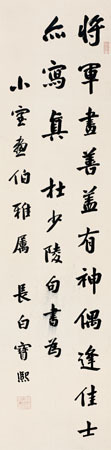 將軍畫善蓋有神偶逢佳士
亦寫真 杜少陵句書為
小室畫伯雅屬 長白寶熙